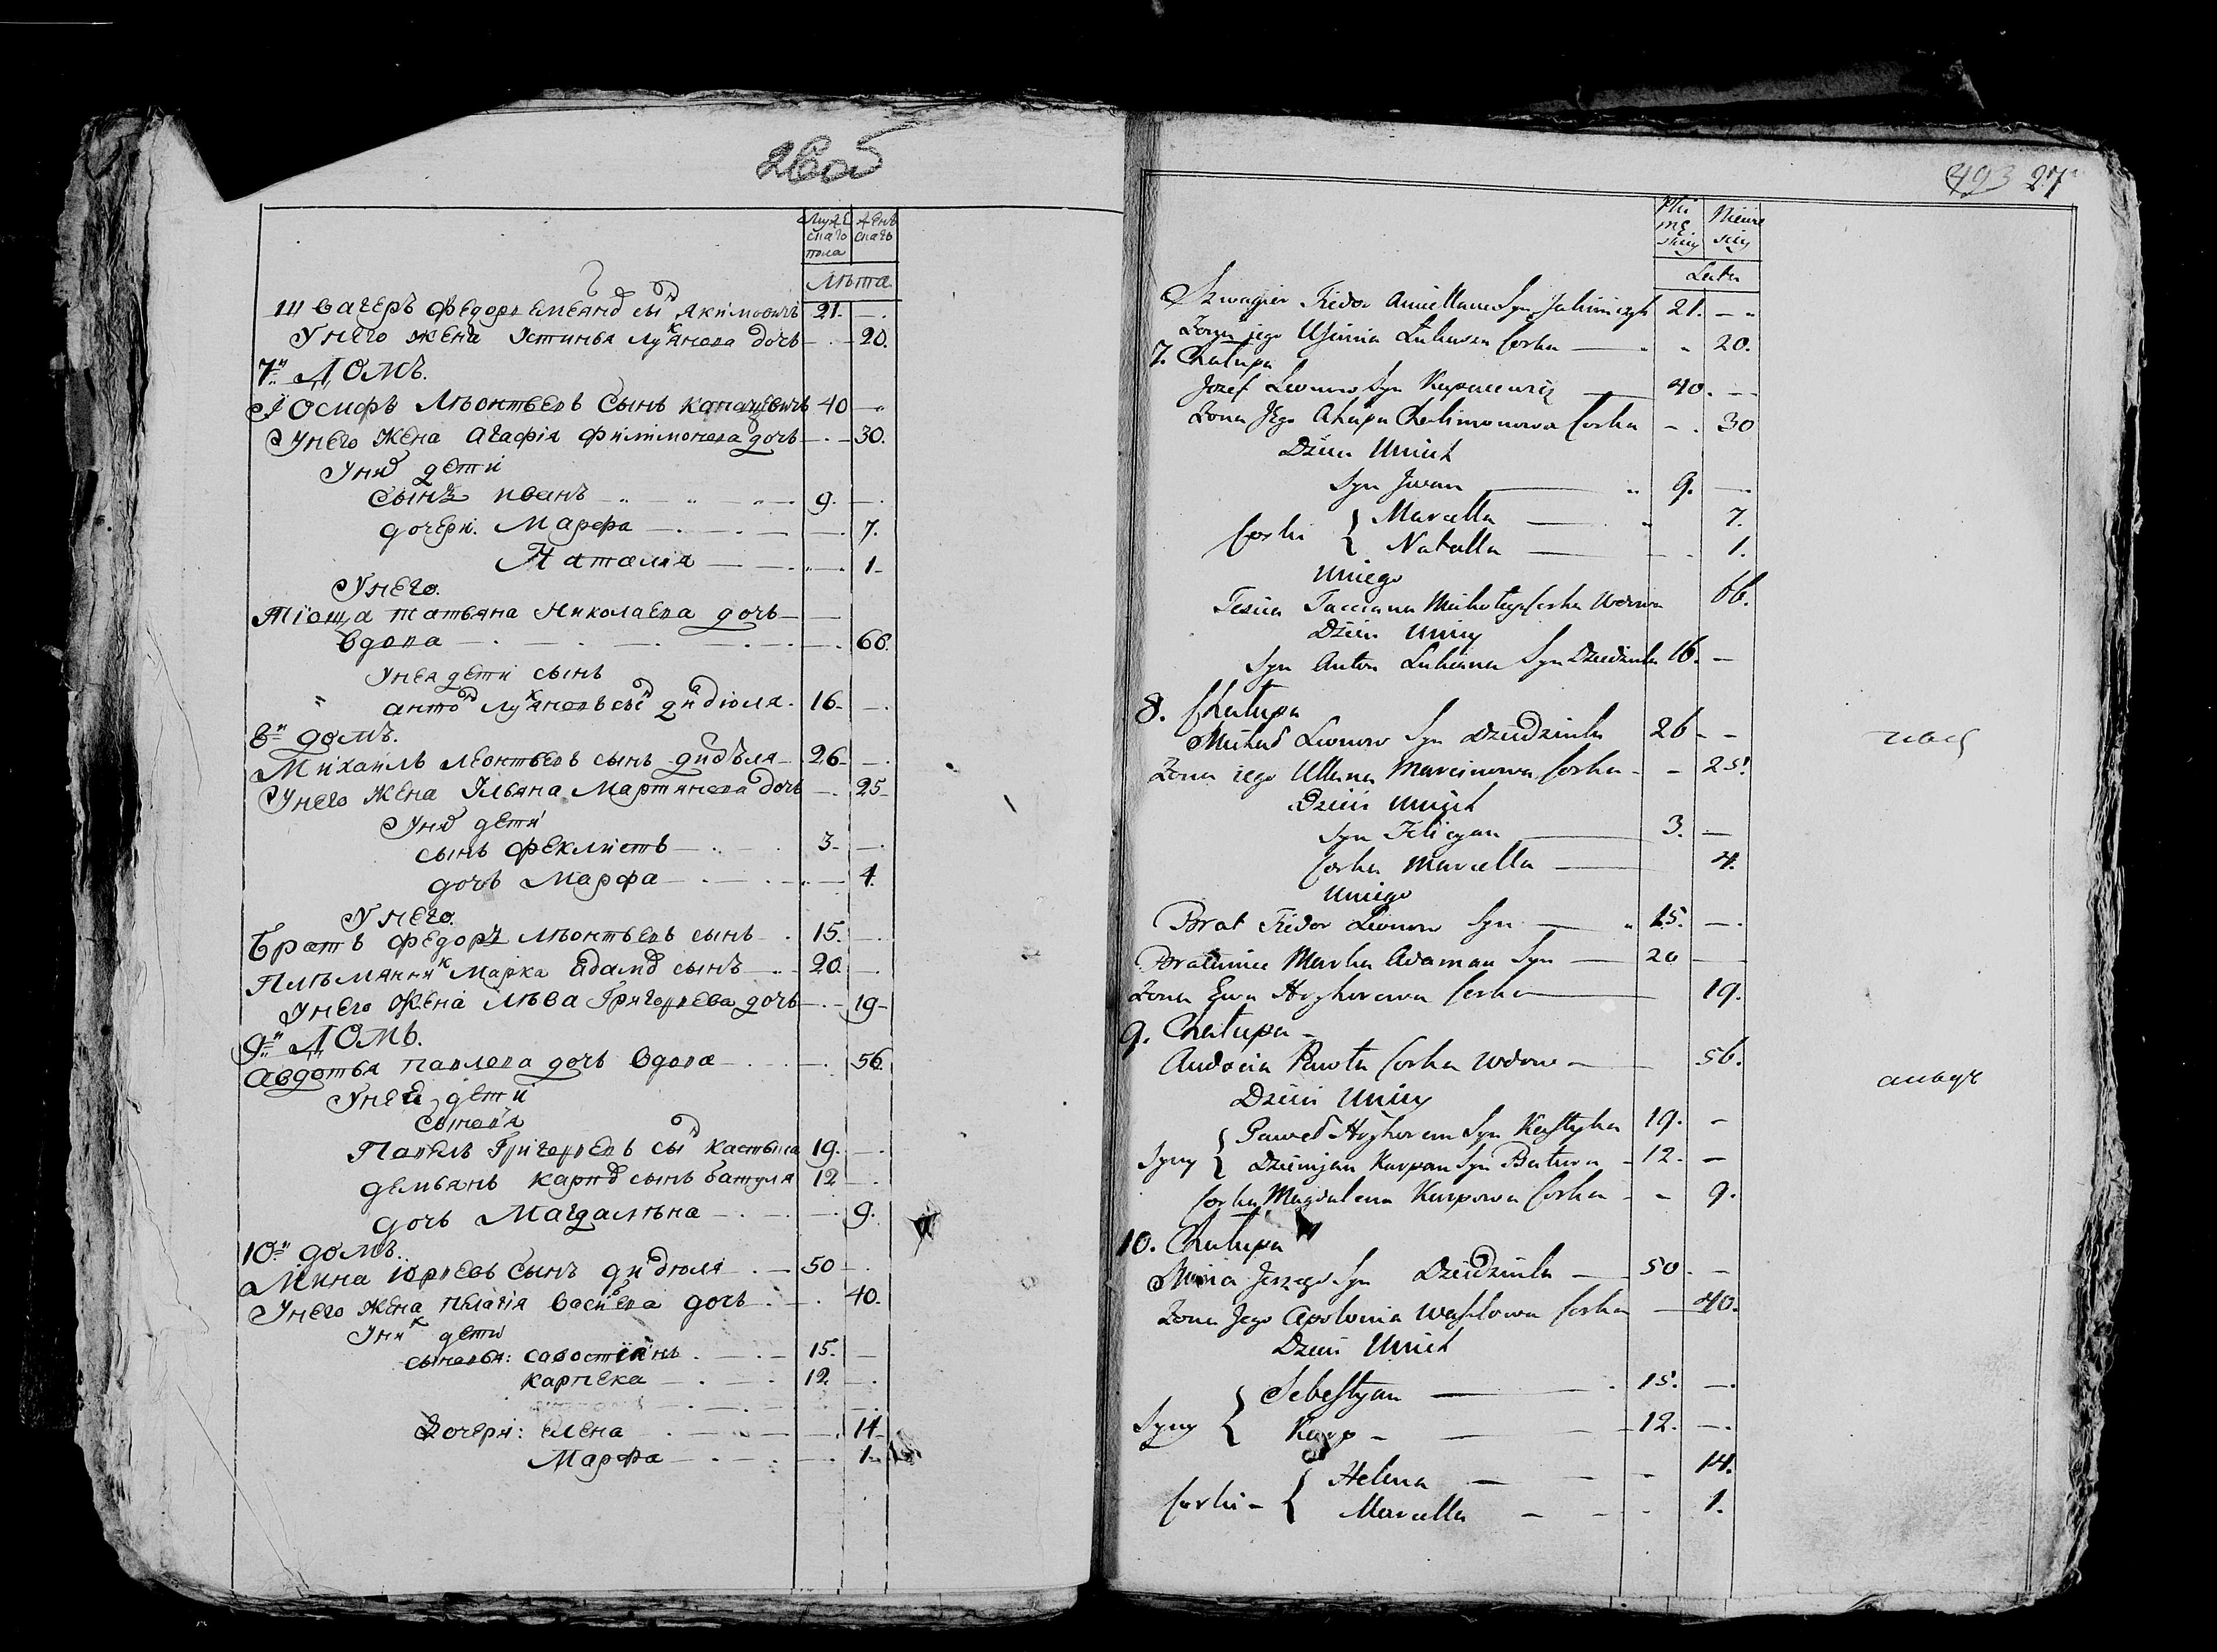 Мужеска пола
Женскаго
Лѣта
Швагеръ Федоръ Емеянов сын Якимовичъ 21. —
Унего жена Устинья Лукянова дочь — 20.
7й Домъ.
Іосифъ Лѣонтьевъ Сынъ Капацевичъ 40 —
Унего жена Агафія Филимонова дочь — 30.
Уних дети
Сынъ иванъ — 9. —
дочери. Марфа — 7.
Наталія — 1
Унего.
Тіоща татьяна Николаева дочь —
вдова — 66.
Унея дети сынъ
антон Лукяновъ сын дидюля 16 —
8й домъ.
Михаилъ Леонтьевъ сынъ дидъля 26 —
Унего жена Ульяна Мартинова дочь — 25
Уних дети
сынъ феклистъ — 3 —
дочь Марфа — 4.
Унего.
Братъ федоръ Лѣонтьевъ сынъ 15. —
Плѣмянник Марка адамов сынъ 20. —
Унего жена Лѣва Григорьева дочь — 19
9й Домъ.
Авдотья павлова дочь вдова — 56
Унеи дети
Сыновя
Павелъ Григорьевъ сын Кастыка 19. —
демьянъ карпов сынъ батуля 12 —
дочь Магдалѣна — 9.
10й домъ.
Мина юрьевъ Сынъ дидюля — 50 —
Унего жена пелагія васильева дочь — 40.
Уних дети
сыновья: савостіянъ — 15. —
карпека — 12. —
Дочери: елена — 14
Марфа — 1
493 27
Męskiey
Niewiesciey
Leta
Szwagier Fiedor Amiellanu Syn Jakimiczyk 21. —
Zona jego Usćinia Lukasza Corka — 20.
7. Chałupa
Jozef Leonow Syn Kapacewicz — 40. —
Zona Jego Ahapa Chalimonowa Corka — 30
Dzieci Unich
Syn Jwan — 9. —
Corki { Marcella — 7.
Natalla — 1.
Uniego
Teścia Tacciana Mikołaja Corka Wdowa 66.
Dzieci Uniey
Syn Anton Lukiana Syn Dziedziula 16. —
8. Chałupa
Michał Leonow Syn Dziedziula 26 —
Zona jego Ullana Marcinowa Corka — 25.
Dzieci Unich
Syn Felicyan — 3. —
Corka Marcella — 4.
Uniego
Brat Fiedor Leonow Syn — 15. —
Bratanice Marka Adaman Syn — 20 —
Zona Ewa Hryhorowa Corka — 19.
9. Chałupa —
Audocia Pawła Corka Wdowa — 56.
Dzieci Uniey
Syny { Paweł Hryhoram Syn Kastyka 19. —
Dziemjan Karpan Syn Batura — 12. —
Corka Magdalena Karpowa Corka — 9.
10. Chałupa
Mina Jerzego Syn Dziedziula — 50 —
Zona Jego Apolonia Wasilowa Corka — 40.
Dzieci Unich
Syny { Sebestyan — 15. —
Karp — 12. —
Corki — { Helena — 14.
Marcella — 1.